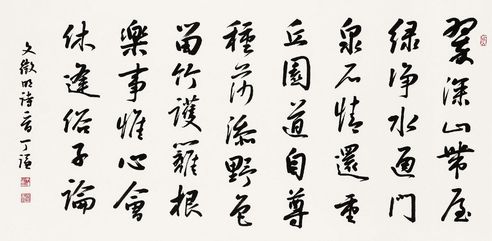 翠深山帶屋
緑净水通門
泉石情還重
丘園道自尊
種莎添野色
留竹護籬根
樂事惟心會
休逢俗子論
文徵明詩一首丁